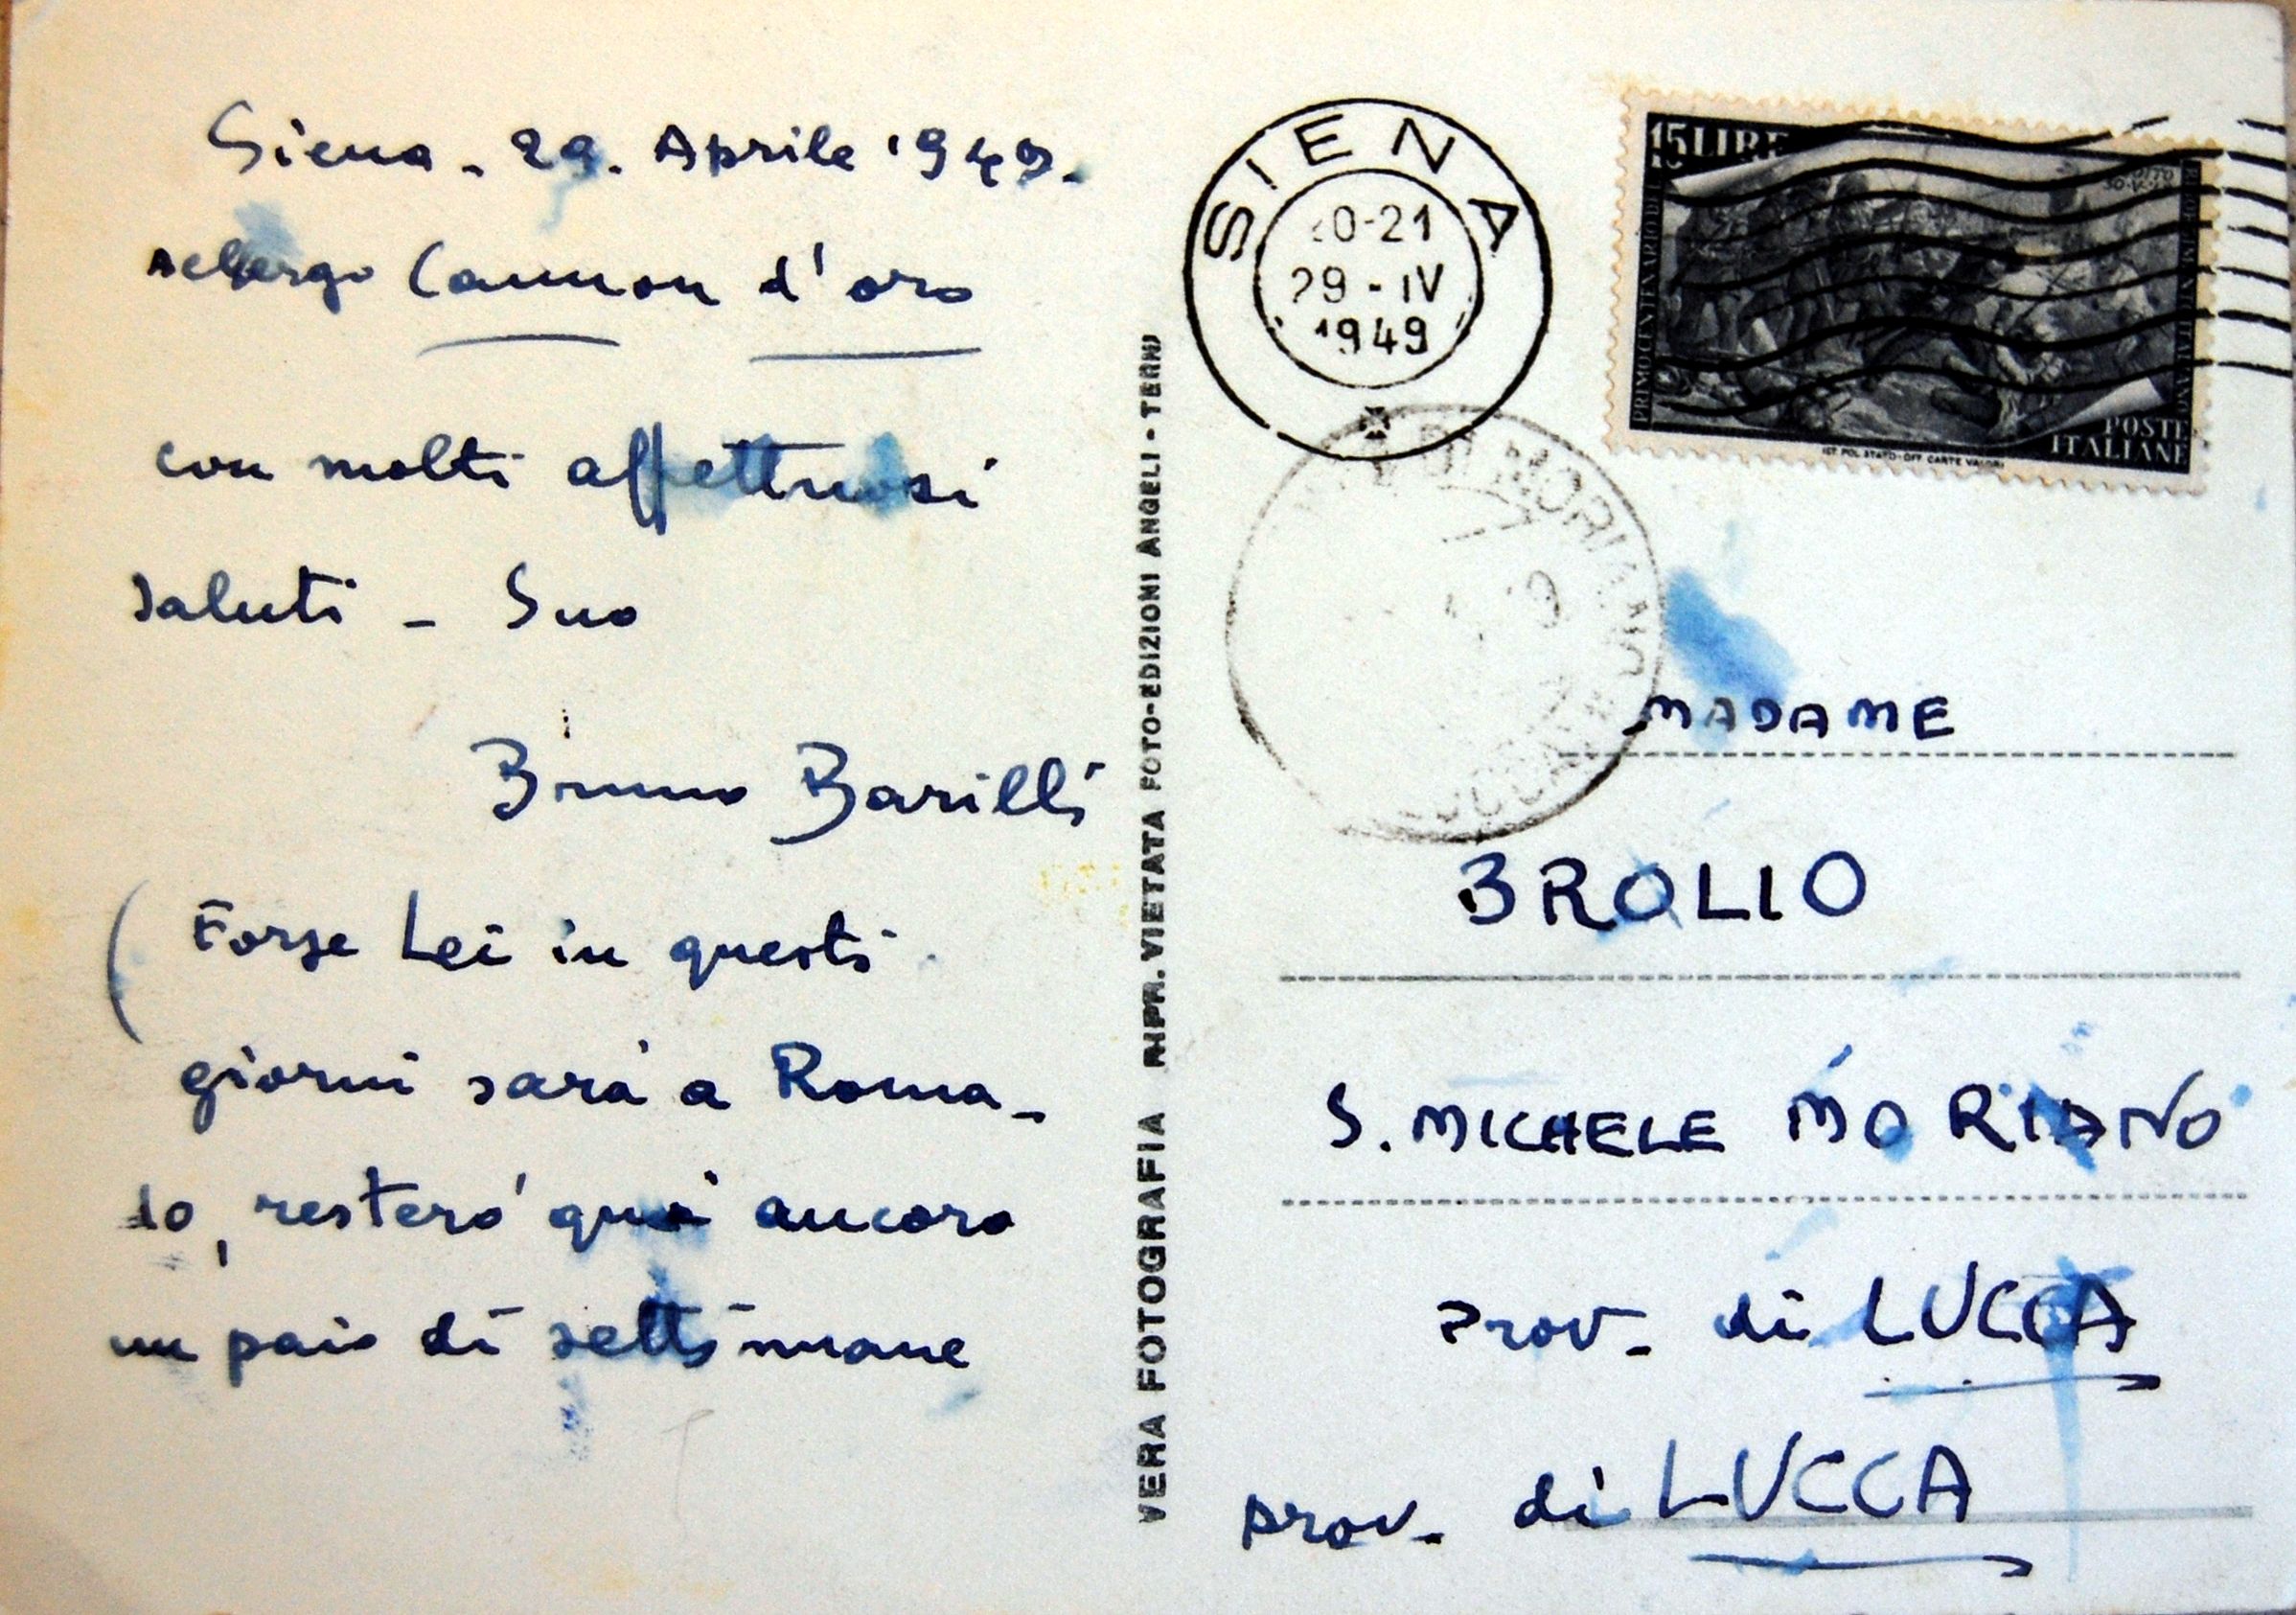 Siena - 29. Aprile 1949.
Albergo Cannon d'oro
con molti affettuosi
saluti - Suo
Bruno Barilli
(Forse Lei in questi
giorni sarà a Roma -
Io, resterò qui ancora
un paio di settimane
VERA FOTOGRAFIA RIPR. VIETATA FOTO-EDIZIONI ANGELI - TERNI
SIENA
20-21
29-IV
1949
DI MORIANO
LUCCA
15 LIRE
PRIMO CENTENARIO DEL
RISORGIMENTO ITALIANO
POSTE
ITALIANE
IST. POL. STATO-OFF. CARTE VALORI
MADAME
BROLIO
S. MICHELE MORIANO
Prov. di LUCCA
prov. di LUCCA